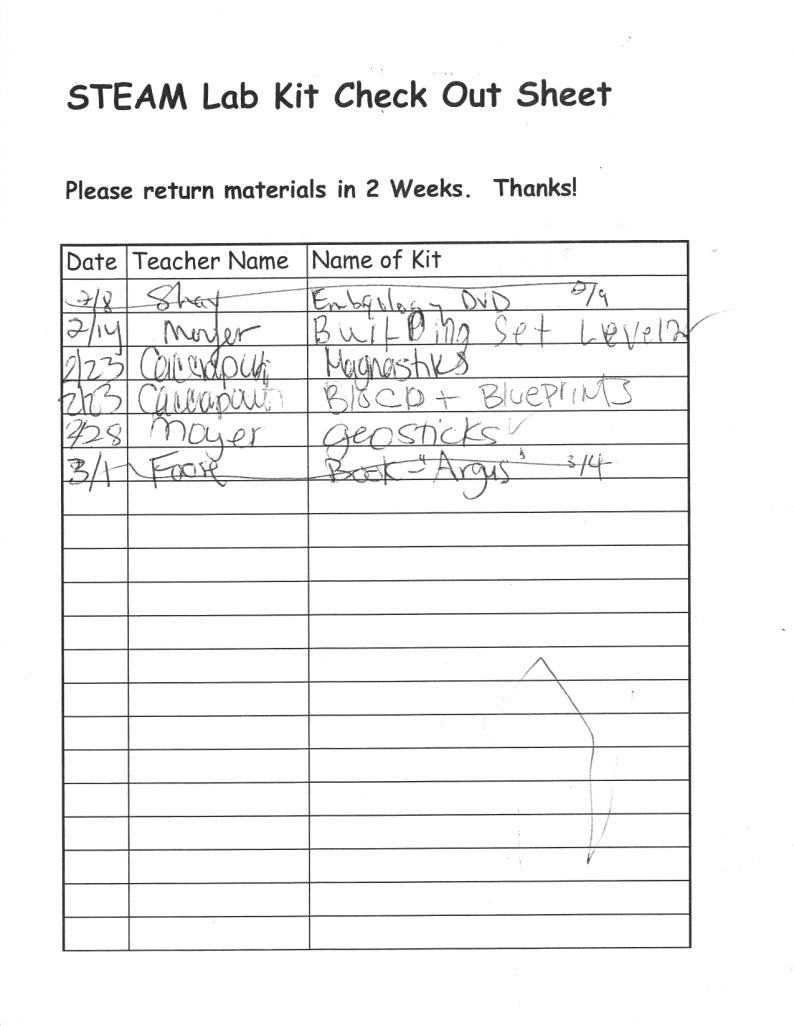 STEAM Lab Kit Check Out Sheet
Please return materials in 2 Weeks. Thanks!
Date Teacher Name Name of Kit
2/8 Shay Embryology DVD 2/9
2/14 Moyer BuilDing Set Level2
2/23 Magnastiks
2/23 + BluePrints
2/28 Moyer geosticks
3/1 Book "Argus" 3/4